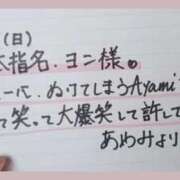 （日）
本指名.ヨン様。
ぬけてしまうAyami
て笑って大爆笑して許して
あめみより